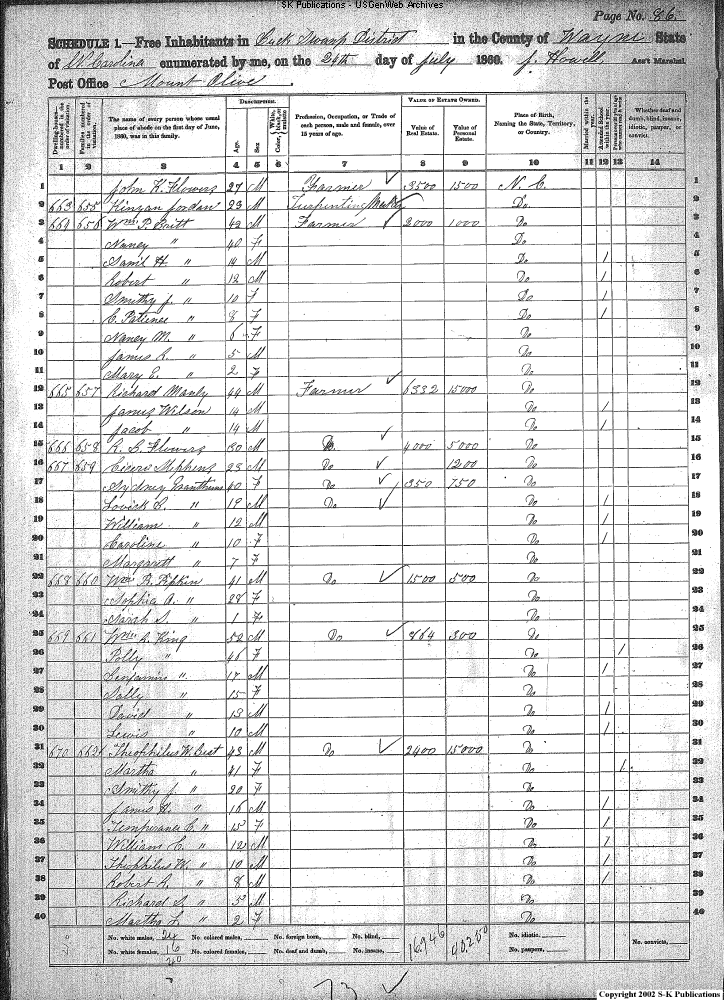 SK Publications - USGenWeb Archives
Page No. 86.
SCHEDULE 1.—Free Inhabitants in Buck Swamp District in the County of Wayne State
of N Carolina enumerated by me, on the 24th day of July 1860. J. Howell, Ass't Marshal.
Post Office Mount Olive
Dwelling-houses numbered in the order of visitation. Families numbered in the order of visitation. The name of every person whose usual place of abode on the first day of June, 1860, was in this family. DESCRIPTION. Age. Sex. Color, White, black, or mulatto. Profession, Occupation, or Trade of each person, male and female, over 15 years of age. VALUE OF ESTATE OWNED. Value of Real Estate. Value of Personal Estate. Place of Birth, Naming the State, Territory, or Country. Married within the year. Attended School within the year. Whether deaf and dumb, blind, insane, idiotic, pauper, or convict.
1 2 3 4 5 6 7 8 9 10 11 12 13 14
1 John K. Flowers 27 M Farmer 3500 1500 N. C. 1
2 663 655 Kinyan Jordan 23 M Turpentine Do 2
3 664 656 Wm P. Britt 42 M Farmer 2000 1000 Do 3
4 Nancy " 40 F Do 4
5 Saml H " 14 M Do / 5
6 Robert " 12 M Do / 6
7 Smithy J. " 10 F Do / 7
8 C. Patience " 8 F Do / 8
9 Nancy M. " 6 F Do 9
10 James R. " 5 M Do 10
11 Mary E. " 2 F Do 11
12 665 657 Richard Manly 44 M Farmer 6332 15000 Do 12
13 James Wilson 14 M Do / 13
14 Jacob " 14 M Do / 14
15 666 658 R. L. Flowers 30 M Do 4000 5000 Do 15
16 667 659 Cicero Stephens 23 M Do 1200 Do 16
17 Sydney Granthum 40 F Do 350 750 Do 17
18 Lovick R. " 19 M Do Do / 18
19 William " 12 M Do / 19
20 Caroline " 10 F Do / 20
21 Margarett " 7 F Do 21
22 668 660 Wm B. Pipkin 41 M Do 1500 500 Do 22
23 Sophia A. " 28 F Do 23
24 Sarah S. " 1 F Do 24
25 669 661 Wm A. King 52 M Do 864 300 Do 25
26 Polly " 46 F Do / 26
27 Benjamin " 17 M Do / 27
28 Sally " 15 F Do 28
29 David " 13 M Do / 29
30 Lewis " 10 M Do / 30
31 670 662 Theophilus W. Best 43 M Do 2400 15000 Do 31
32 Martha " 41 F Do / 32
33 Smithy J. " 20 F Do 33
34 James H. " 16 M Do / 34
35 Temperance C. " 15 F Do / 35
36 William C. " 12 M Do / 36
37 Theophilus W. " 10 M Do / 37
38 Robert R. " 8 M Do / 38
39 Richard S. " 5 M Do 39
40 Martha L. " 2 F Do 40
No. white males, 24 No. colored males, No. foreign born, No. blind, 16,946 40,250 No. idiotic, No. convicts,
No. white females, 16 No. colored females, No. deaf and dumb, No. insane, No. paupers,
40
73
Copyright 2002 S-K Publications